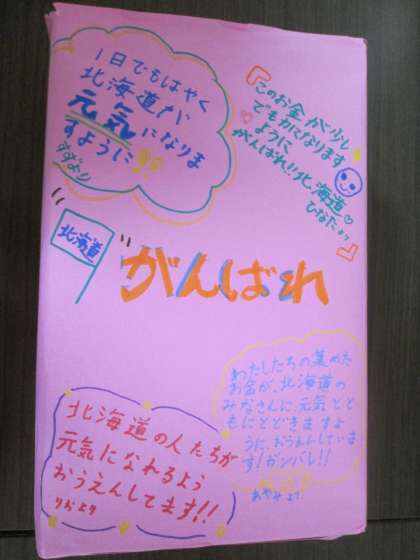 1日でもはやく
北海道が
元気になりま
すように!!
すずより
『このお金が少し
でも力になります
ように
がんばれ!!北海道
ひなたより』
北海道
がんばれ
わたしたちの集めた
お金が、北海道の
みなさんに、元気とと
もにとどきますよ
うに、おうえんしていま
す!ガンバレ!!
あやみより
北海道の人たちが
元気になれるよう
おうえんしてます!!
りおより